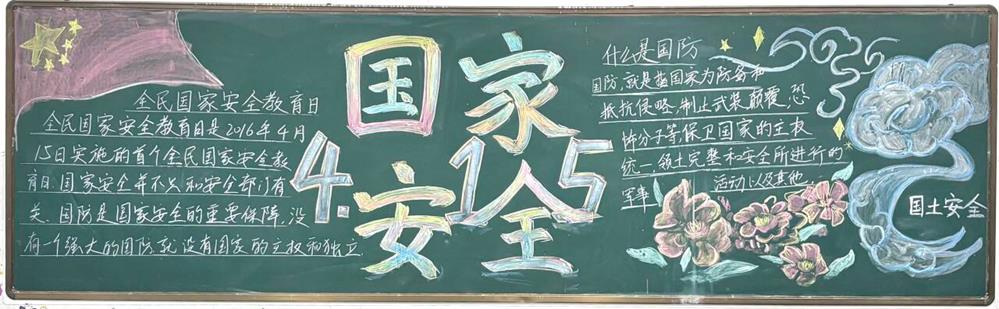 全民国家安全教育日
全民国家安全教育日是2016年4月
15日实施的首个全民国家安全教
育日.国家安全并不只和安全部门有
关、国防是国家安全的重要保障,没
有一个强大的国防,就没有国家的主权和独立
国家
4.15
安全
什么是国防
国防,就是盖国家为防备和
抵抗侵略,制止武装颠覆,恐
怖分子等,保卫国家的主权
统一领土完整和安全所进行的
军事 活动以及其他
国土安全